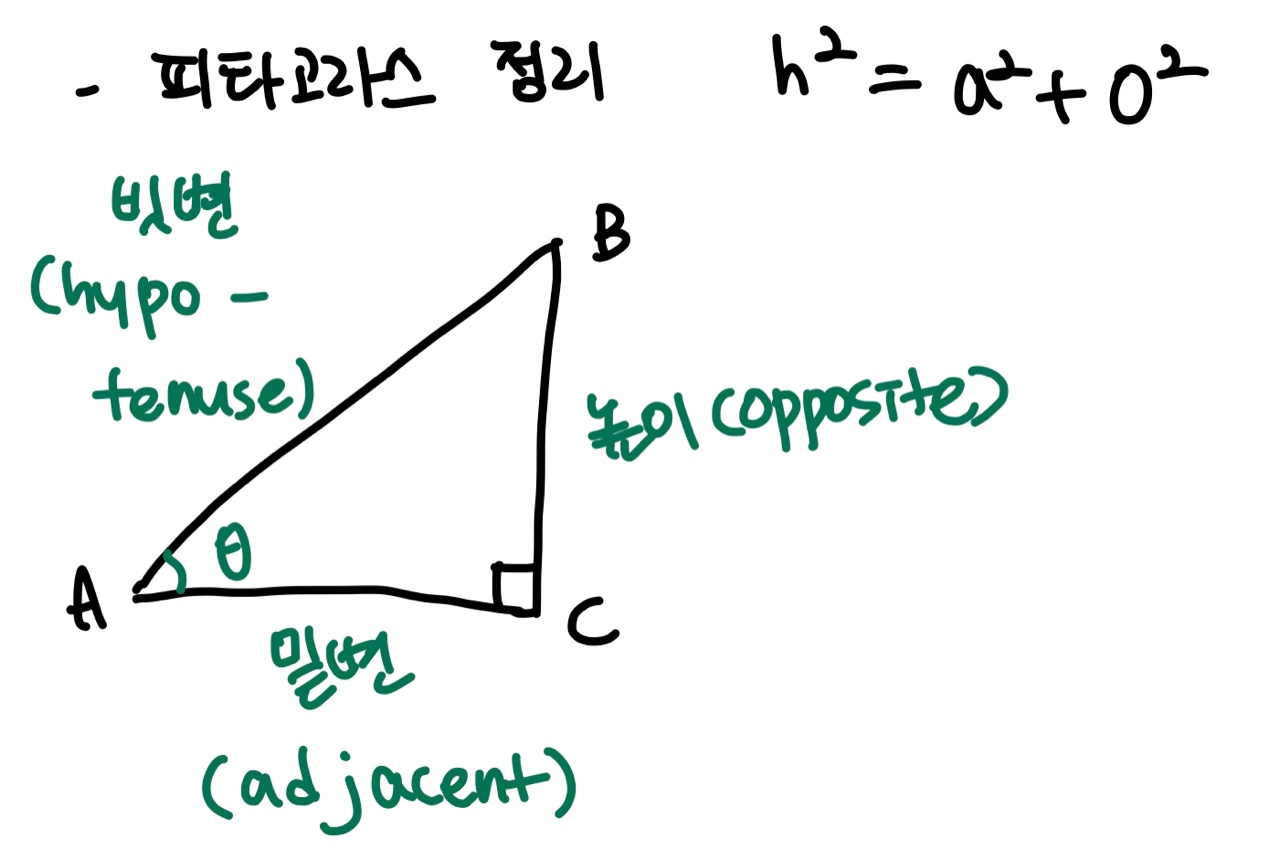 - 피타고라스 정리 h² = a² + o²
빗변
(hypo -
tenuse)
B
높이 (opposite)
θ
A
C
밑변
(adjacent)